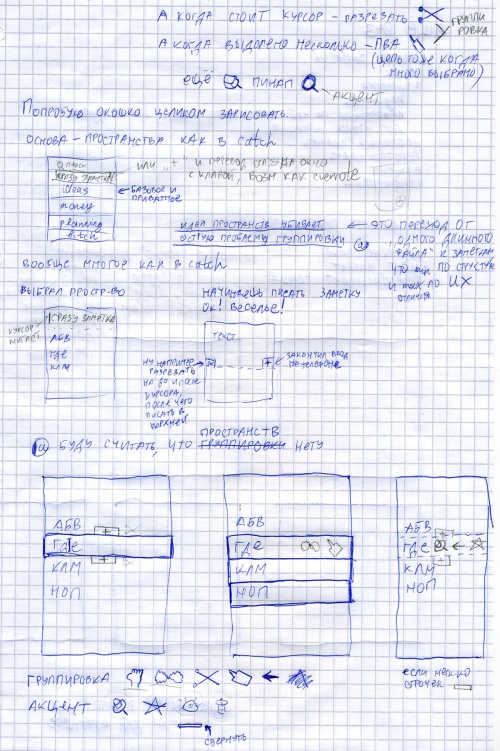 А когда стоит курсор - разрезать
группировка
А когда выделено несколько - два
(цепь тоже когда много выбрано)
ещё пинап
акцент
Попробую окошко целиком зарисовать.
основа - пространства как в catch
поиск
сразу заметка
ideas
money
planning
catch
или "+" и переход сразу на окно
с клавой, возм как evernote
← базовое и приватное
идея пространств убивает
острую проблему группировки
← это переход от
"одного длинного файла" к заметкам
вообще многое как в catch
выбрал простр-во
начинаешь писать заметку
ок! веселье!
сразу заметка
курсор мигает
АБВ
где
клм
текст
ну например разрезать
на до и после курсора,
после чего писать в верхней
← закончил ввод на телефоне
а буду считать, что пространств группировки нету
АБВ
+
где
+
КЛМ
НОП
АБВ
где
КЛМ
НОП
АБВ
где
КЛМ
НОП
группировка
акцент
свернуть
если неск-ко строчек